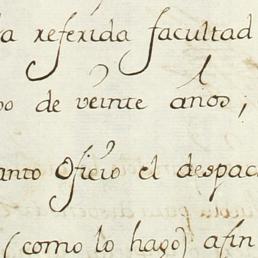 a referida facultad
po de veinte años;
anto Oficio el despac
(como lo hago) afin